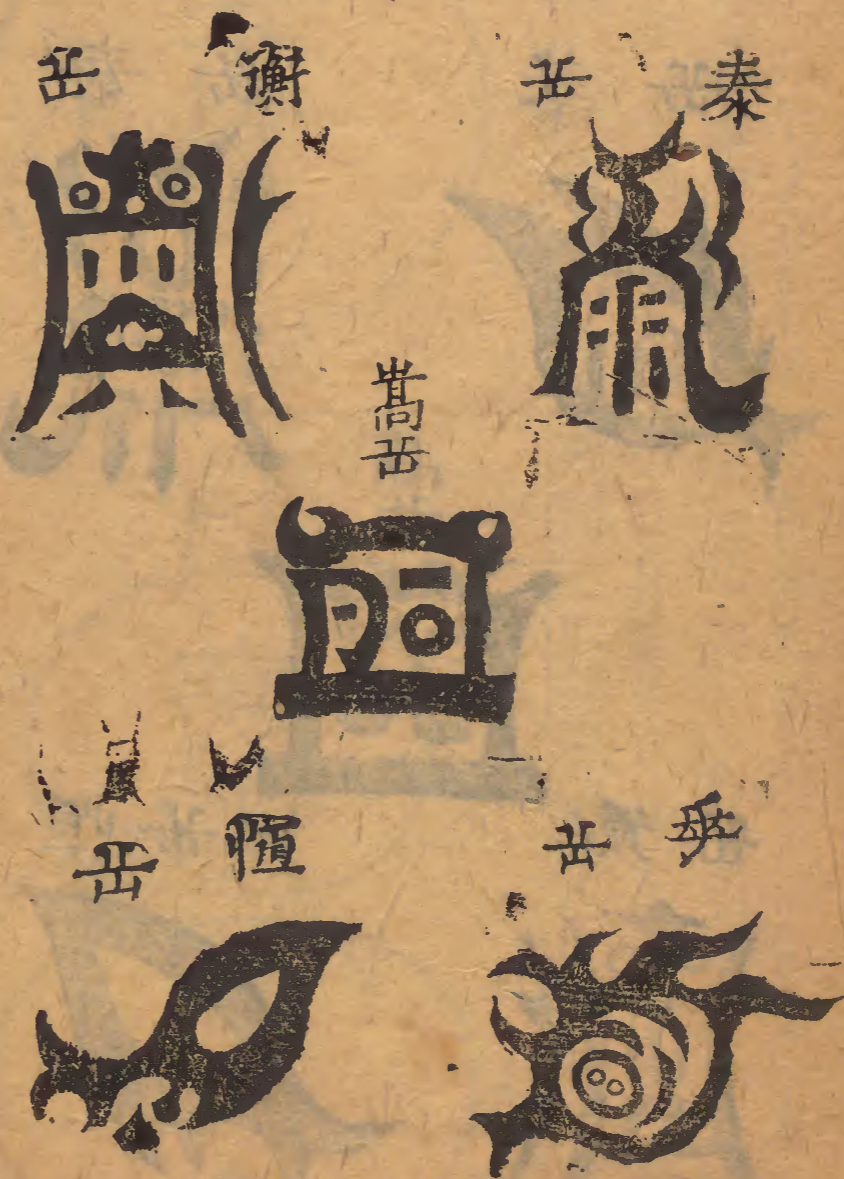 泰岳
衡岳
嵩岳
華岳
恒岳